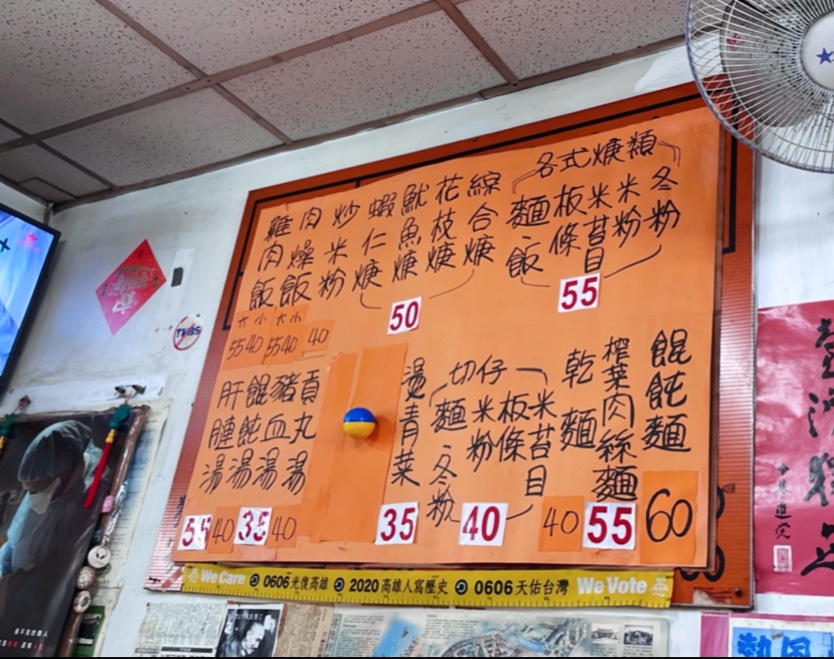 各式焿類
冬粉
米粉
米苔目
板條
麵
飯
55
綜合焿
花枝焿
魷魚焿
蝦仁焿
50
炒米粉
40
肉燥飯
大 小
55 40
雞肉飯
大 小
55 40
餛飩麵
60
榨菜肉絲麵
55
乾麵
40
切仔
米苔目
板條
米粉
麵
冬粉
40
燙青菜
35
貢丸湯
40
豬血湯
35
餛飩湯
40
We Care 0606光復高雄 2020高雄人寫歷史 0606天佑台灣 We Vote